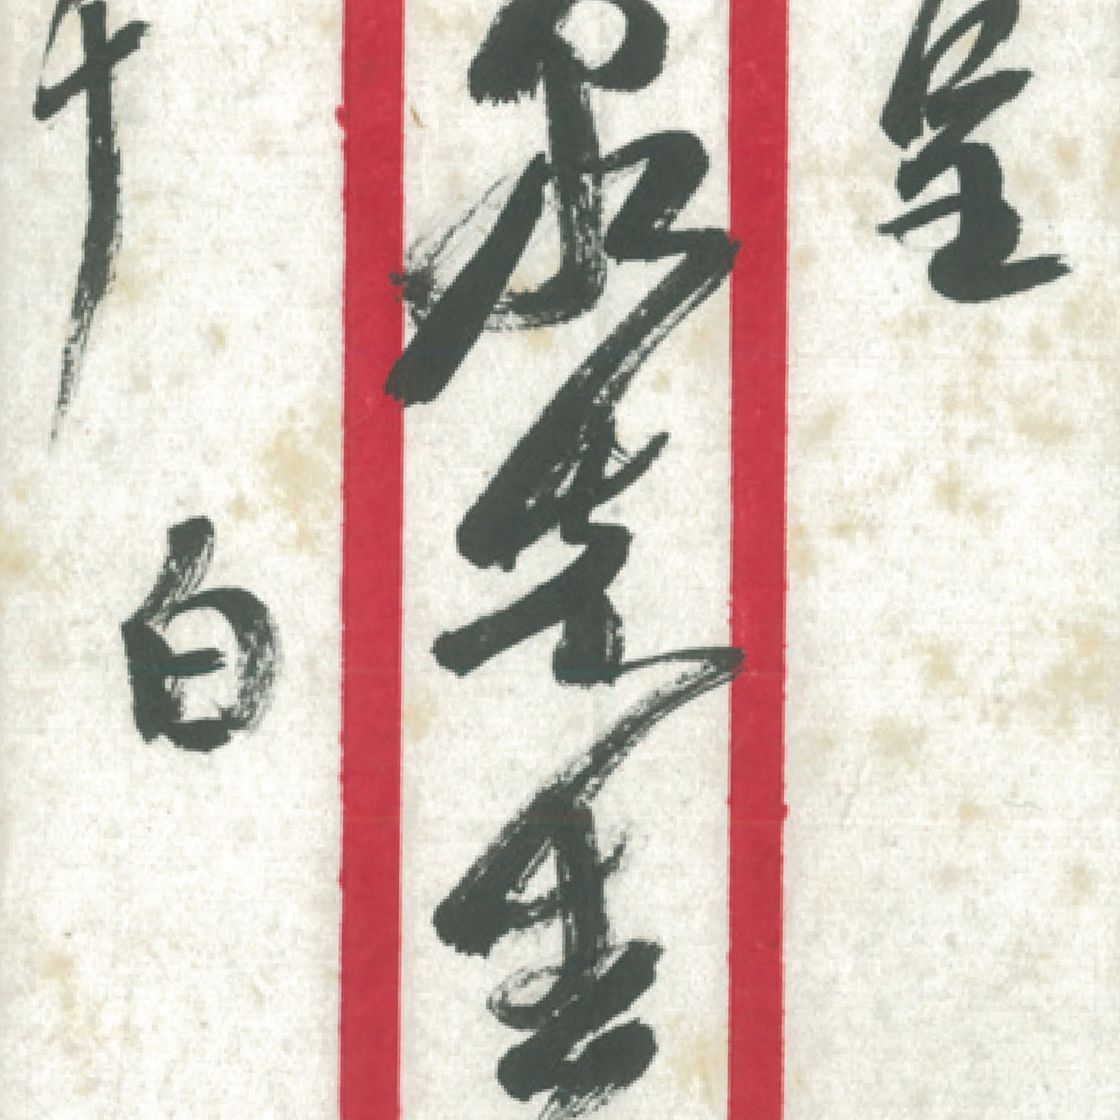 呈
泉先生
白